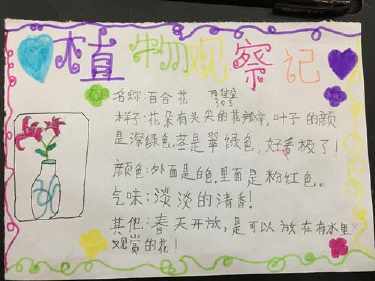 植物观察记
名称:百合花
样子:花朵有头尖的花瓣,叶子的颜
是深绿色,茎是翠绿色,好看极了!
颜色:外面是白色,里面是粉红色。
气味:淡淡的清香!
其他:春天开放,是可以放在有水里
观赏的花!